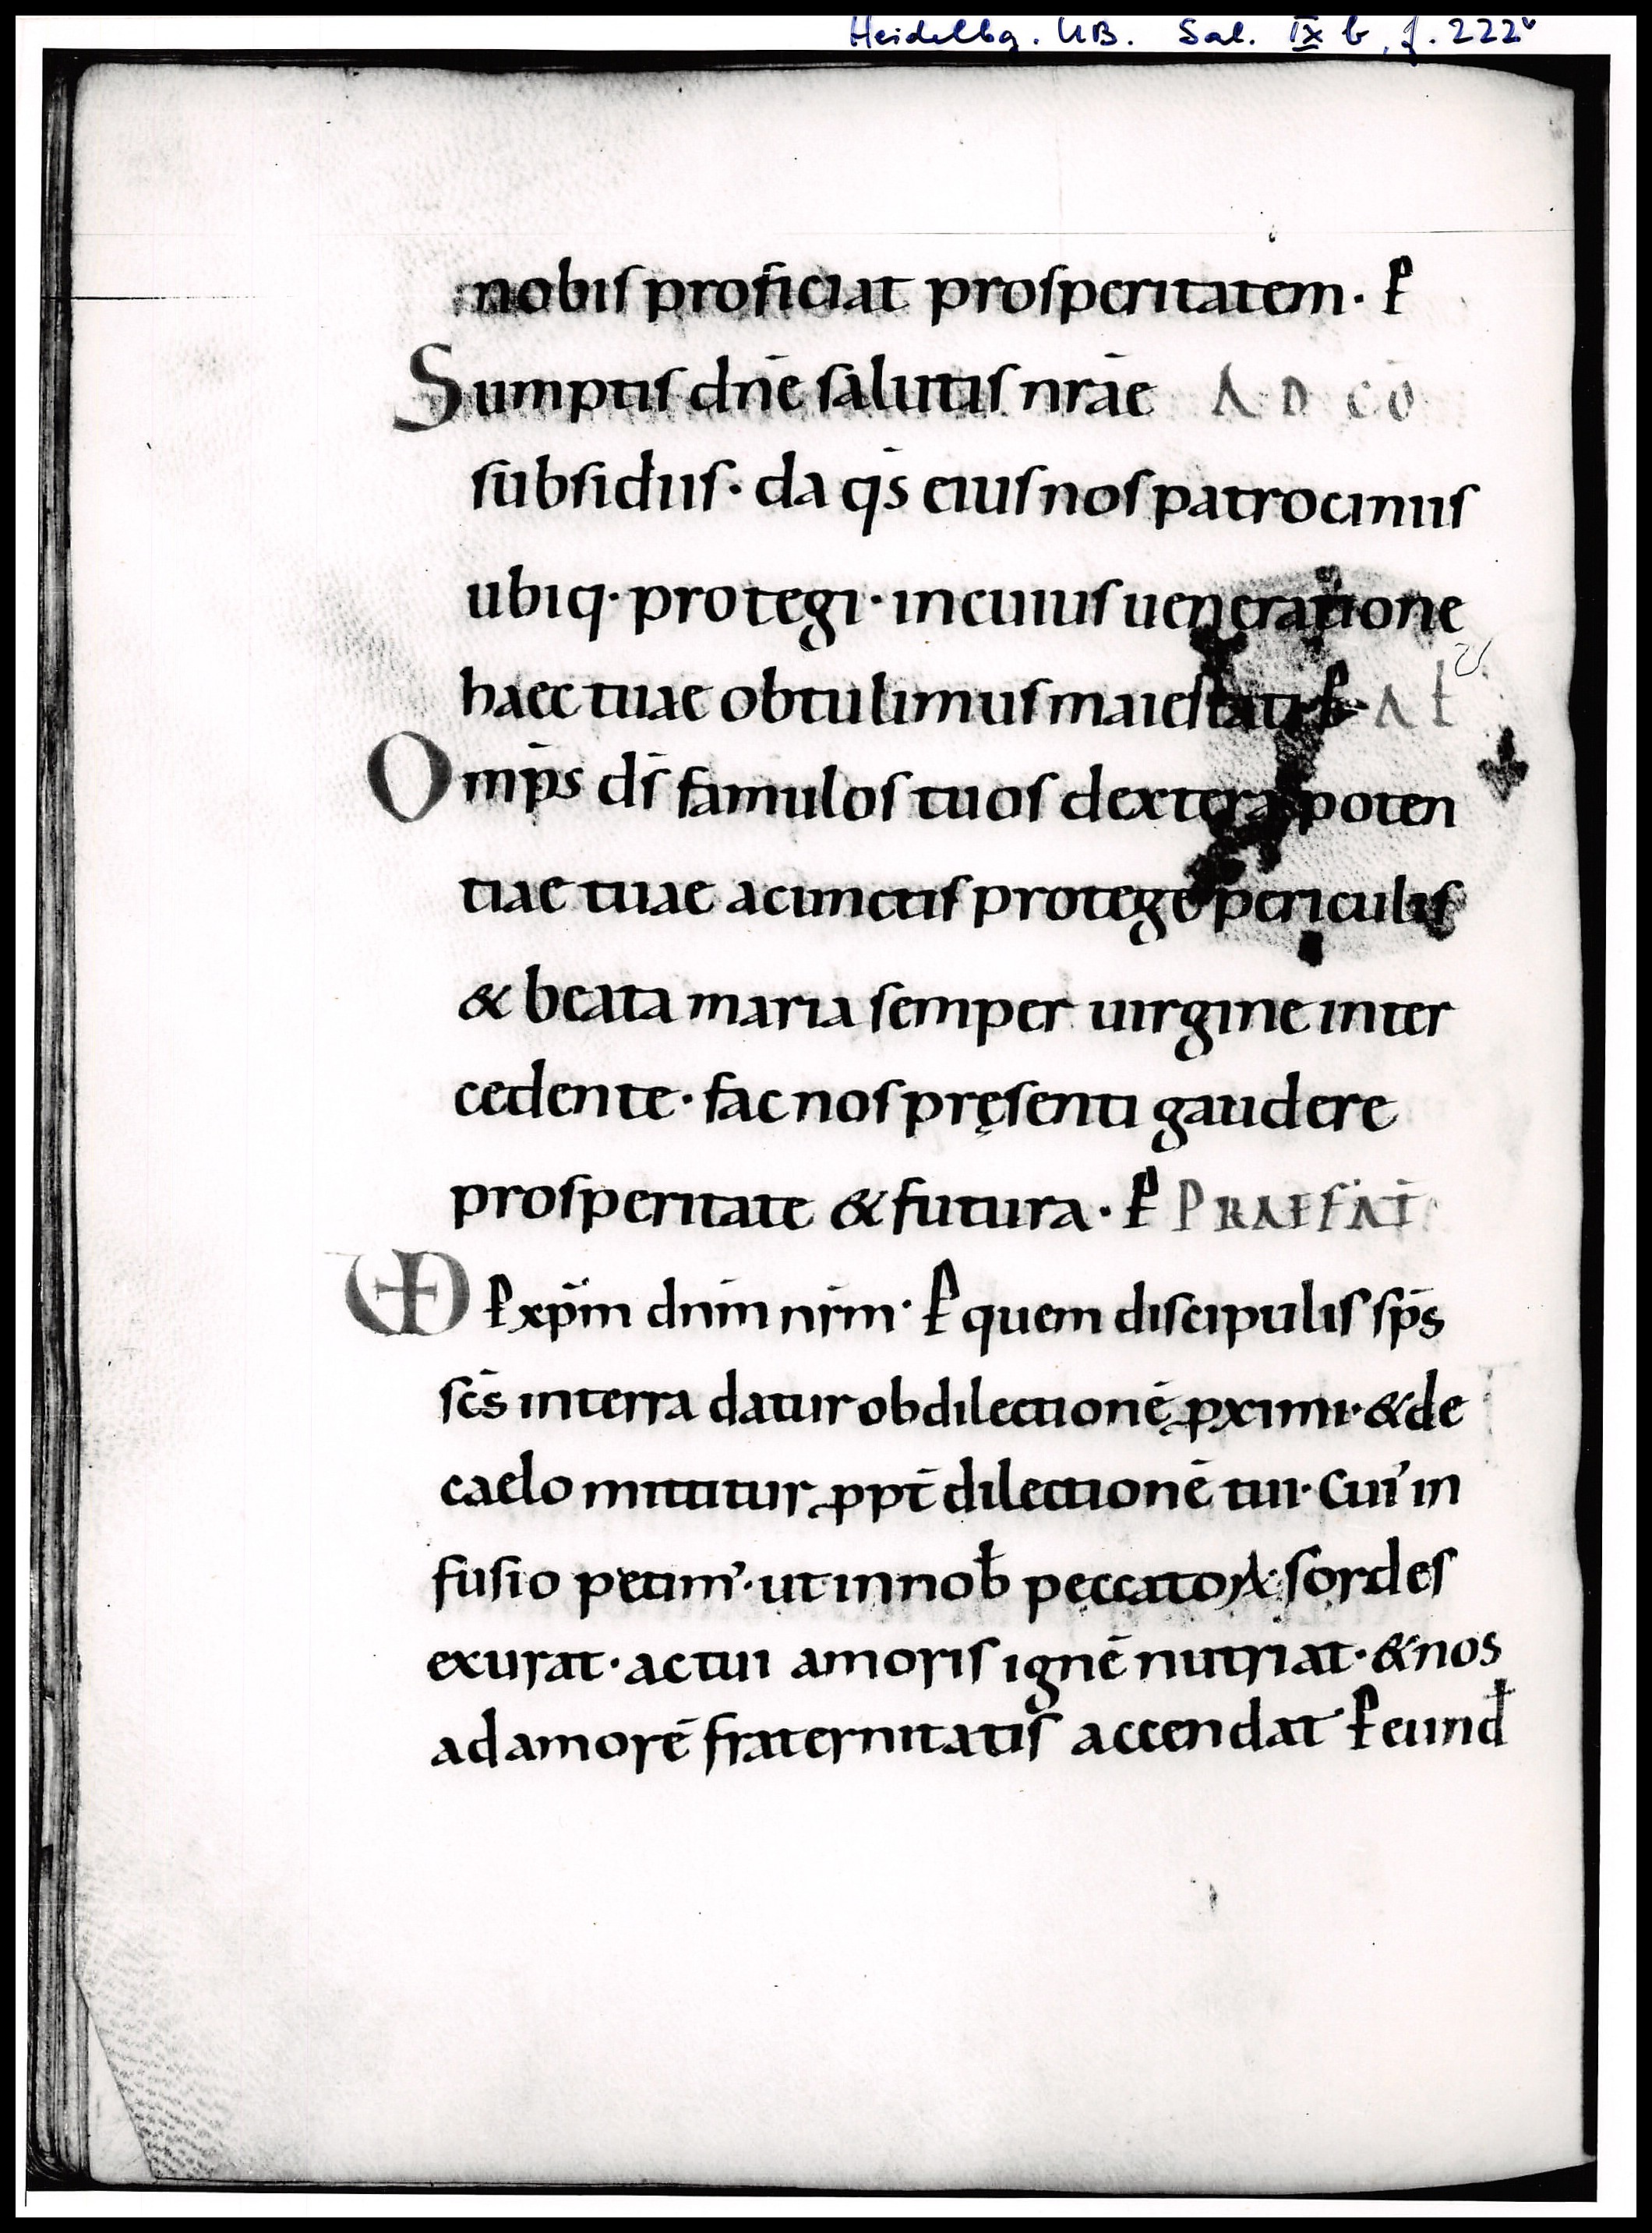 Heidelbg. UB. Sal. IX b, f. 222v
nobis proficiat prosperitatem · P
Sumptis dnē salutis nrāe AD CŌ
subsidiis · da qs̄ eius nos patrociniis
ubiq· protegi · in cuius ueneratione
haec tuae obtulimus maiestati P · AL
Omps̄ ds̄ famulos tuos dextera poten
tiae tuae a cunctis protege periculis
& beata maria semper uirgine inter
cedente · fac nos pręsenti gaudere
prosperitate & futura · P PRAEFAT
VD P xpm̄ dnm̄ nrm̄ · P quem discipulis sps̄
scs̄ in terra datur ob dilectionē ꝓximi · & de
caelo mittitur ꝓpt̄ dilectionē tui · Cui' in
fusio petim' · ut in nob̄ peccatoꝝ sordes
exurat · ac tui amoris ignē nutriat · & nos
ad amorē fraternitatis accendat · P eund̄